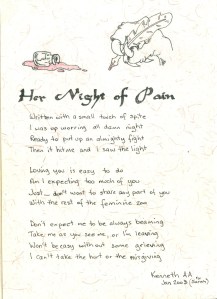 Her Night of Pain
Written with a small touch of spite
I was up worrying all damn night
Ready to put up an almighty fight
Then it hit me and I saw the light
Loving you is easy to do
Am I expecting too much of you
Just don't want to share any part of you
With the rest of the feminine zoo
Don't expect me to be always beaming
Take me as you see me, or I'm leaving
Won't be easy without some grieving
I can't take the hurt or the misgiving
Kenneth AA
Jan 2003